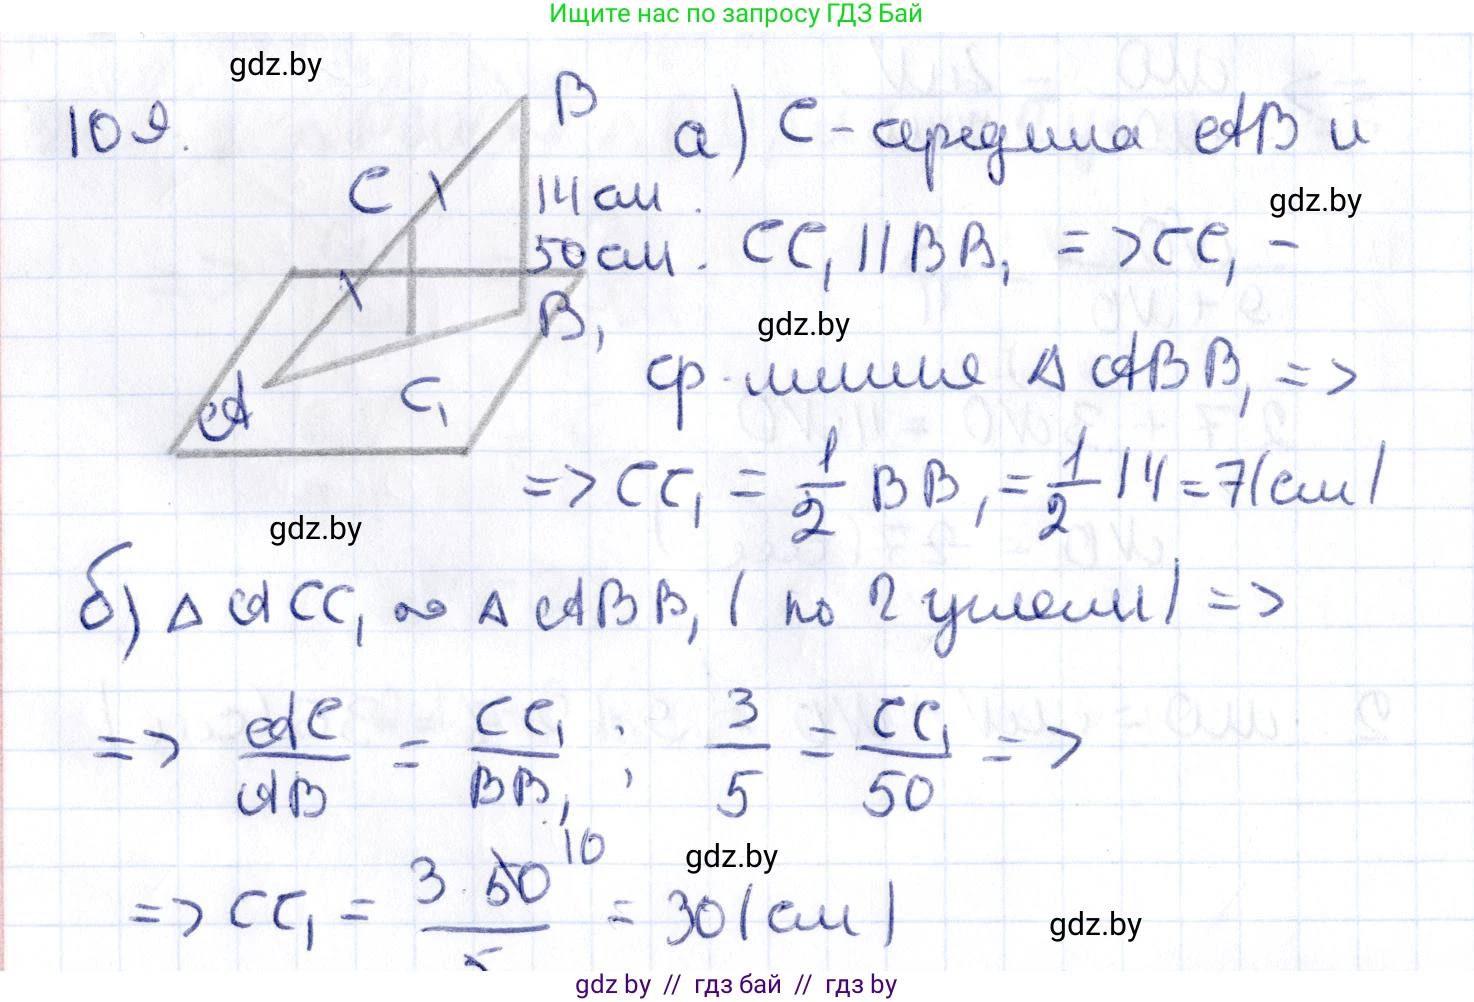 Ищите нас по запросу ГДЗ Бай
gdz.by
109.
B
C
14 см.
50 см.
B₁
A
C₁
а) C - середина AB и
gdz.by
CC₁ || BB₁ => CC₁ -
gdz.by
ср. линия △ ABB₁ =>
=> CC₁ = 1/2 BB₁ = 1/2 14 = 7 (см)
gdz.by
б) △ ACC₁ ∾ △ ABB₁ (по 2 углам) =>
=> AC/AB = CC₁/BB₁ ; 3/5 = CC₁/50 =>
gdz.by
=> CC₁ = 3·50 10/5 = 30 (см)
gdz.by
gdz by // гдз бай // гдз by